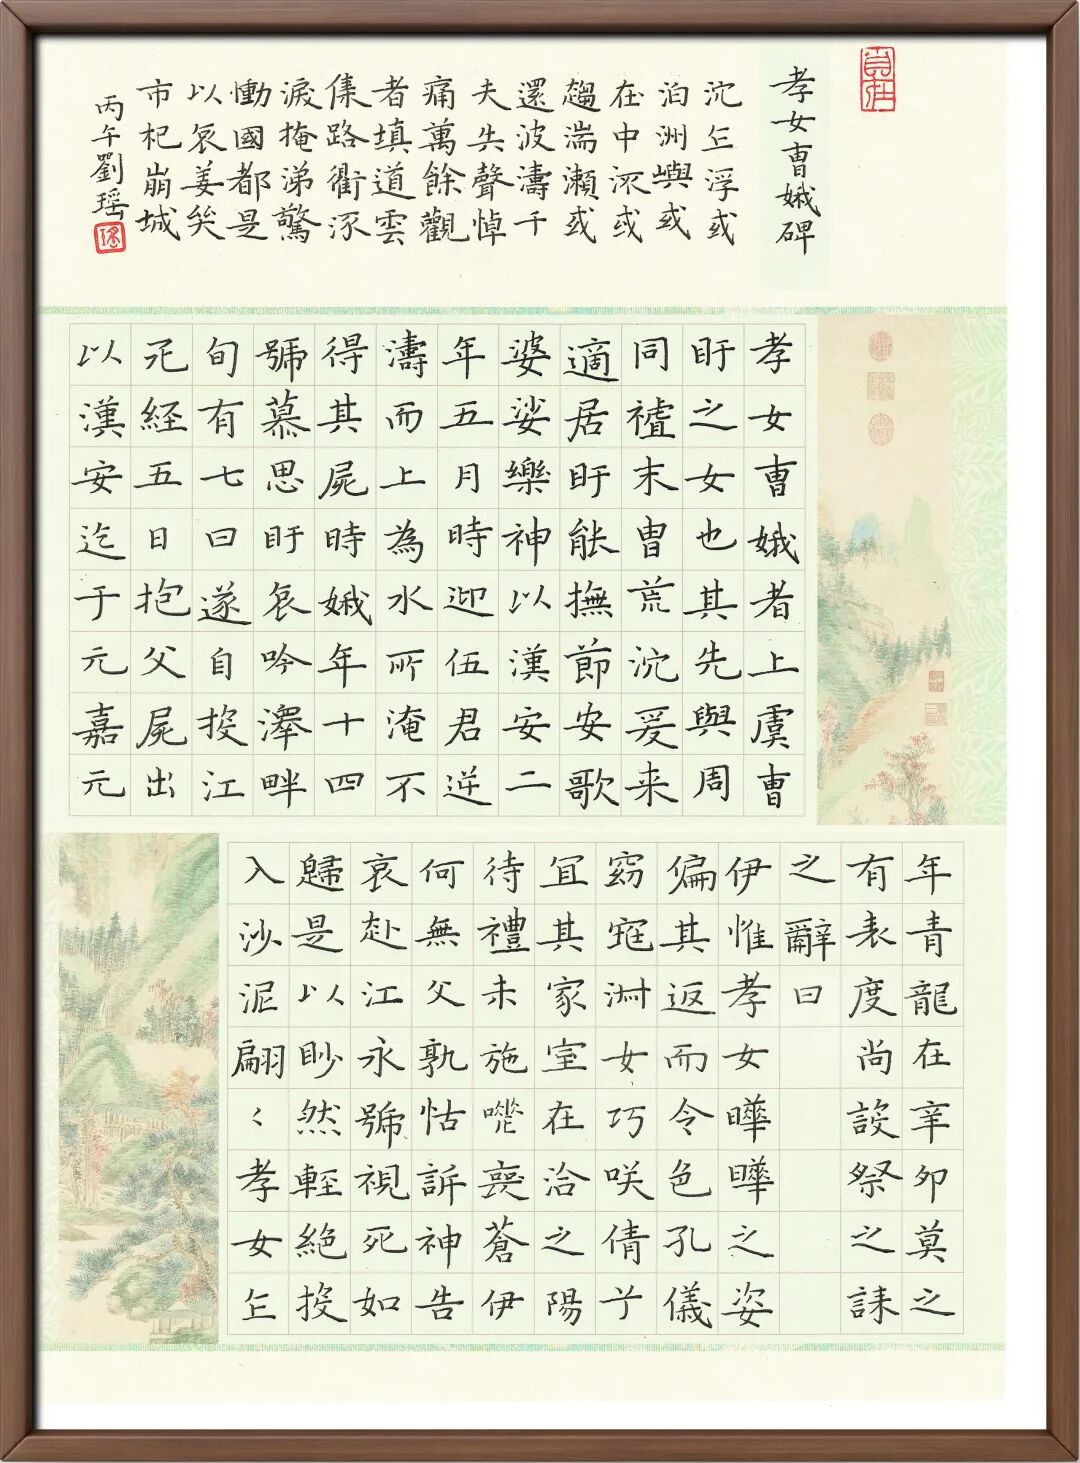 孝女曹娥碑
孝女曹娥者上虞曹
盱之女也其先與周
同祖末曹荒沈爰来
適居盱能撫節安歌
婆娑樂神以漢安二
年五月時迎伍君逆
濤而上為水所淹不
得其屍時娥年十四
號慕思盱哀吟澤畔
旬有七日遂自投江
死經五日抱父屍出
以漢安迄于元嘉元
年青龍在辛卯莫之
有表度尚設祭之誄
之辭曰
伊惟孝女曄曄之姿
偏其返而令色孔儀
窈窕淑女巧咲倩兮
宜其家室在洽之陽
待禮未施嗟喪蒼伊
何無父孰怙訴神告
哀赴江永號視死如
歸是以眇然輕絕投
入沙泥翩々孝女乍
沈乍浮或
泊洲嶼或
在中流或
趨湍瀨或
還波濤千
夫失聲悼
痛萬餘觀
者填道雲
集路衢流
淚掩涕驚
慟國都是
以哀姜哭
市杞崩城
丙午劉瑶
瑶